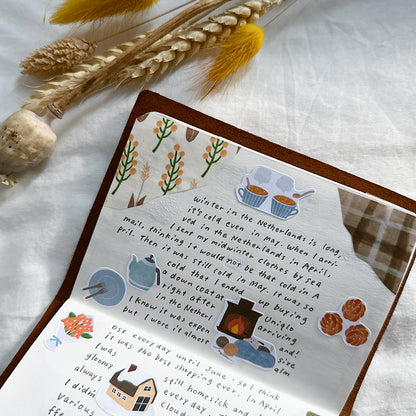 Winter in the Netherlands is long,
it's cold even in may. When I arri
ved in the Netherlands in April,
I sent my midwinter clothes by sea
mail, thinking I would not be that cold in A
pril. Then it was still cold in may. It was so
cold that I ended up buying
down coat at Uniqlo
right after arriving
in the Netherl and!
I know it was expen sive
but I wore it almost
ose everyday until June, so I think
I was the best shopping ever. In April
I was still homesick and
gloomy every day.
always cloud
I didn
various